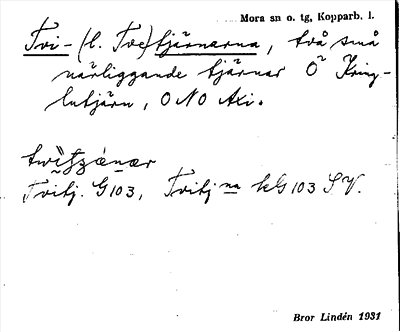 Mora sn o. tg, Kopparb. l.
Tvi- (l. Tve)tjärnarna, två små
närliggande tjärnar Ö Kring-
lutjärn, ONO Axi.
Tvitj. G103, Tvitj na kG 103 SV.
Bror Lindén 1931